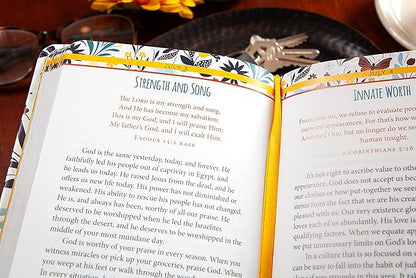 JULY 3
STRENGTH AND SONG
The LORD is my strength and song,
And He has become my salvation;
This is my God, and I will praise Him;
My father's God, and I will exalt Him.
EXODUS 15:2 NASB
God is the same yesterday, today, and forever. He
faithfully led his people out of captivity in Egypt, and
he leads us today. He raised Jesus from the dead, and he
offers us new life today. His power has not diminished or
weakened. His ability to rescue his people has not changed.
He is, and always has been, worthy of all our praise. He
deserved to be worshipped when he led the Israelites
through the desert, and he deserves to be worshipped in the
middle of your most mundane day.
God is worthy of your praise in every season. When you
witness miracles or pick up your groceries, praise God. When
you weep at his feet or walk through the
In every situation,
JULY
INNATE WORTH
From now on, we refuse to
outward appearances. For that's how we
Anointed One, but no longer do we see
human insight.
2 CORINTHIANS 5:16
It's not right to ascribe value to other
appearance. God does not accept us bec
our clothes or how put-together we seem
created each of us
pleased with us. Our very existence glor
loves each of us abundantly. His love is
qualifying factors. When we equate app
we put unnecessary limits on God's lov
In a culture that is so focused
can be easy to fall into the habit of